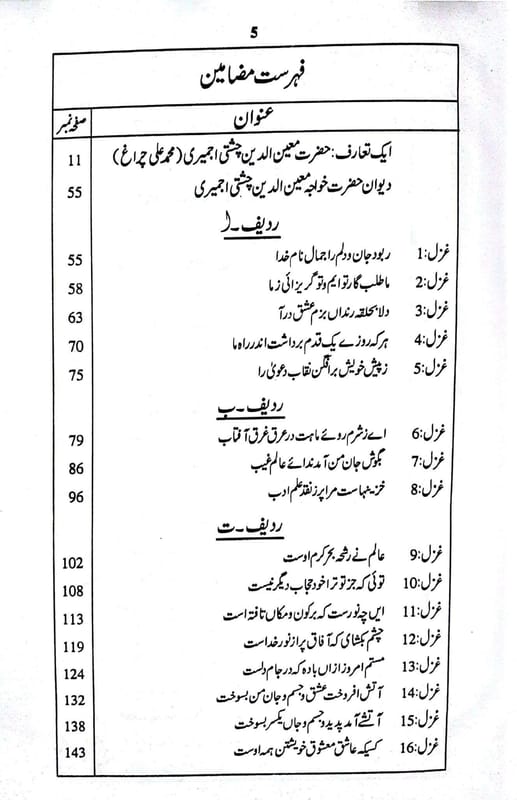 5
فہرست مضامین
عنوان صفحہ نمبر
ایک تعارف: حضرت معین الدین چشتی اجمیری (محمد علی چراغ) 11
دیوان حضرت خواجہ معین الدین چشتی اجمیری 55
ردیف۔ا
غزل:1 ربود جان و دلم را جمال نام خدا 55
غزل:2 ما طلب گار توایم و تو گریزائی زما 58
غزل:3 دلا بحلقہ رنداں بزم عشق درآ 63
غزل:4 ہر کہ روزے یک قدم برداشت اندر راہ ما 70
غزل:5 ز پیش خویش برافگن نقاب دعویٰ را 75
ردیف۔ب
غزل:6 اے ز شرم روئے ماہت در عرق غرق آفتاب 79
غزل:7 بگوش جان من آمد ندائے عالم غیب 86
غزل:8 خزینہاست مرا پر ز نقد علم ادب 96
ردیف۔ت
غزل:9 عالم نے رشحہ بحر کرم اوست 102
غزل:10 توئی کہ جز تو ترا خود حجاب دیگر نیست 108
غزل:11 ایں چہ نورست کہ بر کون و مکاں تافتہ است 113
غزل:12 چشم بکشای کہ آفاق پر از نور خداست 119
غزل:13 مستم امروز ازاں بادہ کہ در جام ولست 124
غزل:14 آتش افروخت عشق و جسم و جان من بسوخت 132
غزل:15 آتشے آمد پدید و جسم و جاں یکسر بسوخت 138
غزل:16 کسیکہ عاشق معشوق خویشتن ہمہ اوست 143